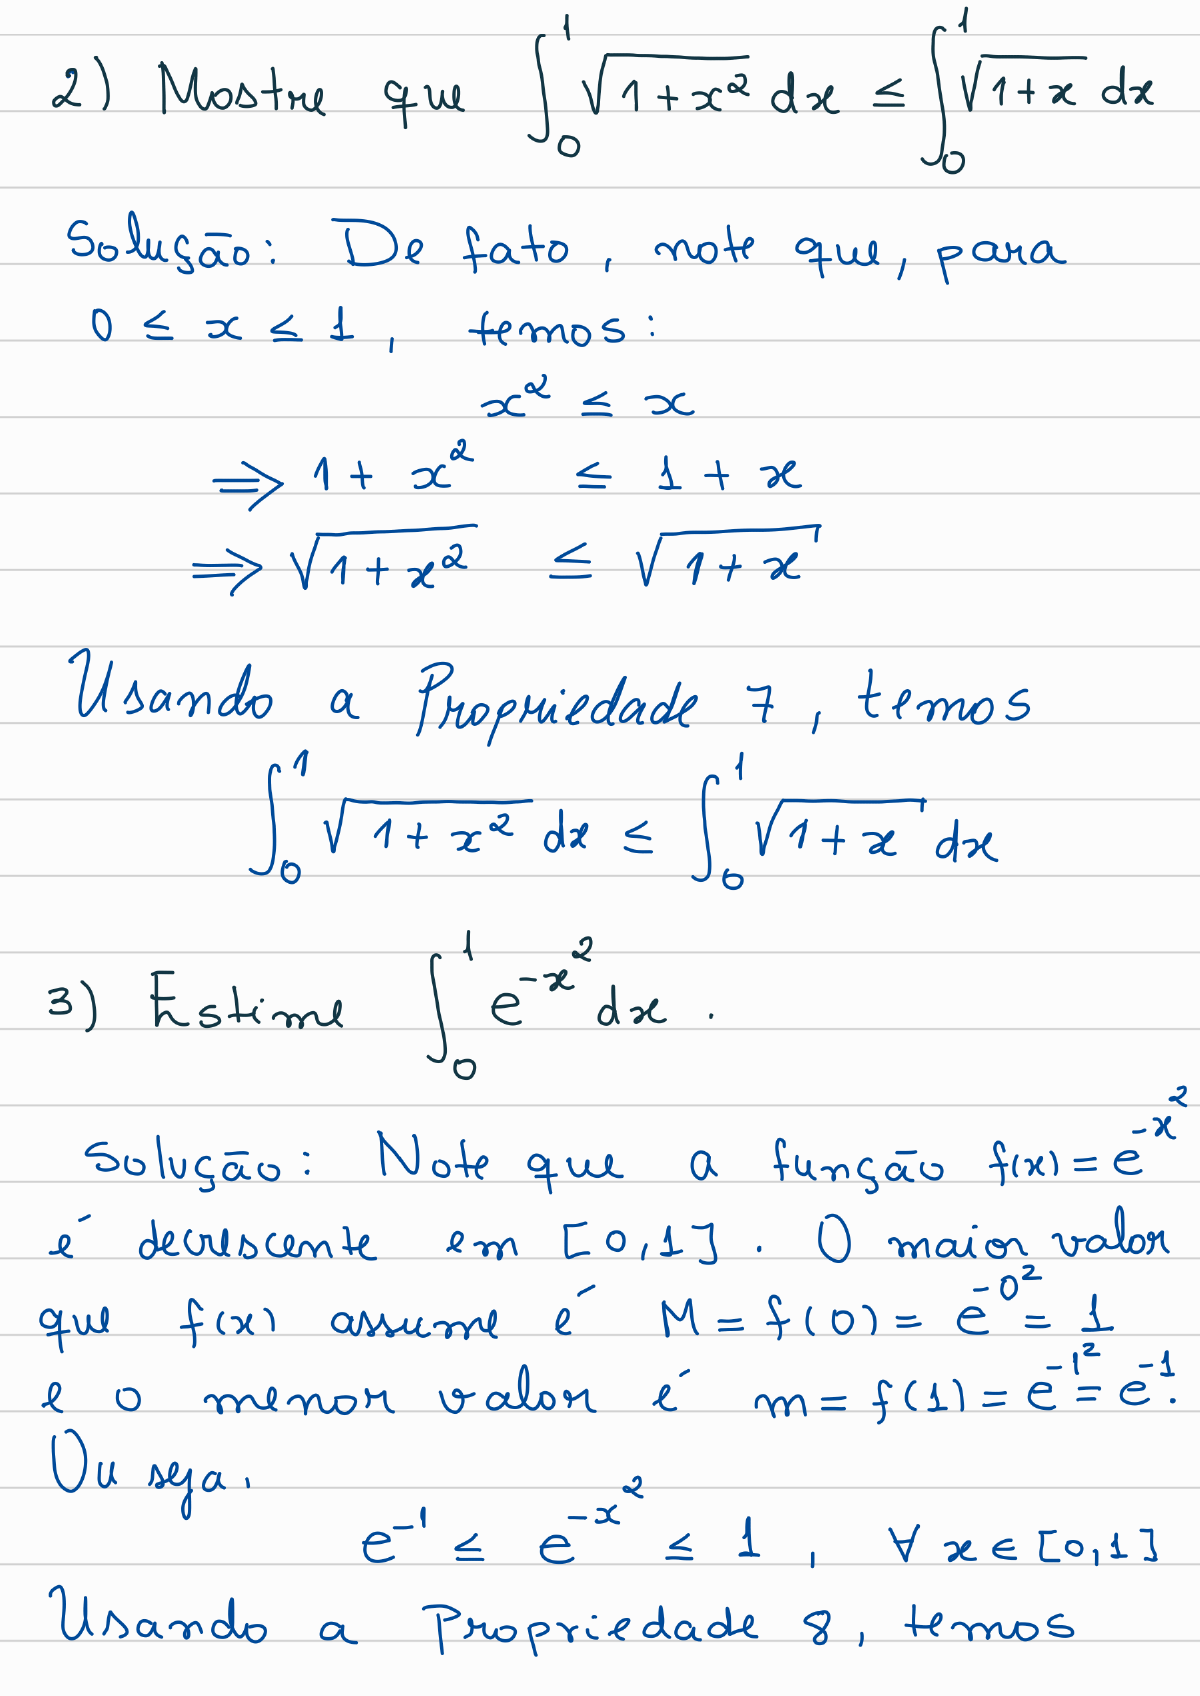 2) Mostre que ∫₀¹ √(1+x²) dx ≤ ∫₀¹ √(1+x) dx
Solução: De fato, note que, para
0 ≤ x ≤ 1, temos:
x² ≤ x
⇒ 1 + x² ≤ 1 + x
⇒ √(1+x²) ≤ √(1+x)
Usando a Propriedade 7, temos
∫₀¹ √(1+x²) dx ≤ ∫₀¹ √(1+x) dx
3) Estime ∫₀¹ e^(-x²) dx.
Solução: Note que a função f(x) = e^(-x²)
é decrescente em [0,1]. O maior valor
que f(x) assume é M = f(0) = e^(-0²) = 1
e o menor valor é m = f(1) = e^(-1²) = e^(-1).
Ou seja,
e^(-1) ≤ e^(-x²) ≤ 1, ∀ x ∈ [0,1]
Usando a Propriedade 8, temos